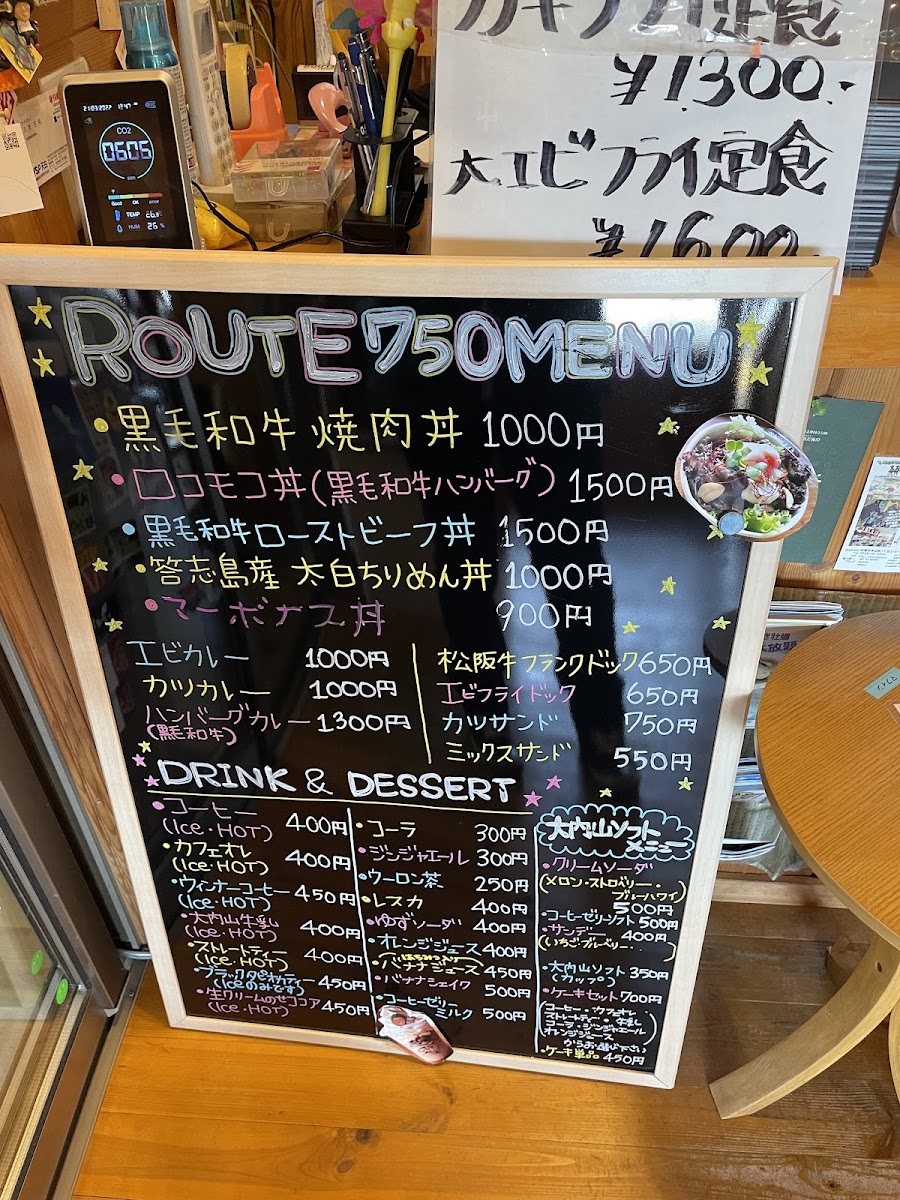 21/03/2022 12:47
CO2
0606
ppm
Good OK poor
TEMP
HUM 26 %
カキフライ定食
¥1,300.-
大エビフライ定食
¥1,600.
ROUTE750MENU
・黒毛和牛 焼肉丼 1000円
・ロコモコ丼(黒毛和牛ハンバーグ) 1500円
・黒毛和牛ローストビーフ丼 1500円
・答志島産 太白ちりめん丼 1000円
・マーボナス丼 900円
エビカレー 1000円
カツカレー 1000円
ハンバーグカレー 1300円
(黒毛和牛)
松阪牛フランクドック 650円
エビフライドック 650円
カツサンド 750円
ミックスサンド 550円
DRINK & DESSERT
・コーヒー 400円
(Ice・HOT)
・カフェオレ 400円
(Ice・HOT)
・ウィンナーコーヒー 450円
(Ice・HOT)
・大内山牛乳 400円
(Ice・HOT)
・ストレートティー 400円
(Ice・HOT)
・ブラックタピオカティー 450円
(Iceのみです)
・生クリームのせココア 450円
(Ice・HOT)
・コーラ 300円
・ジンジャエール 300円
・ウーロン茶 250円
・レスカ 400円
・ゆずソーダ 400円
・オレンジジュース 400円
・バナナジュース 450円
・バナナシェイク 500円
・コーヒーゼリー
ミルク 500円
大内山ソフト
メニュー
・クリームソーダ
(メロン・ストロベリー・
ブルーハワイ)
500円
・コーヒーゼリーソフト 500円
・サンデー 400円
(いちご・ブルーベリー・
)
・大内山ソフト 350円
(カップ)
・ケーキセット 700円
(コーヒー・カフェオレ
ストレートティー・牛乳
コーラ・ジンジャエール
オレンジジュース
からお選び下さい)
・ケーキ単品 450円